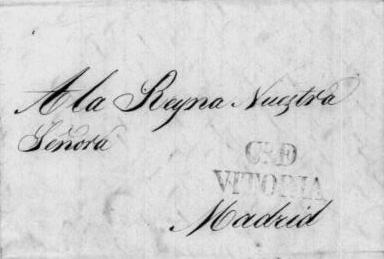 A la Reyna Nuestra
Señora
VITORIA
Madrid